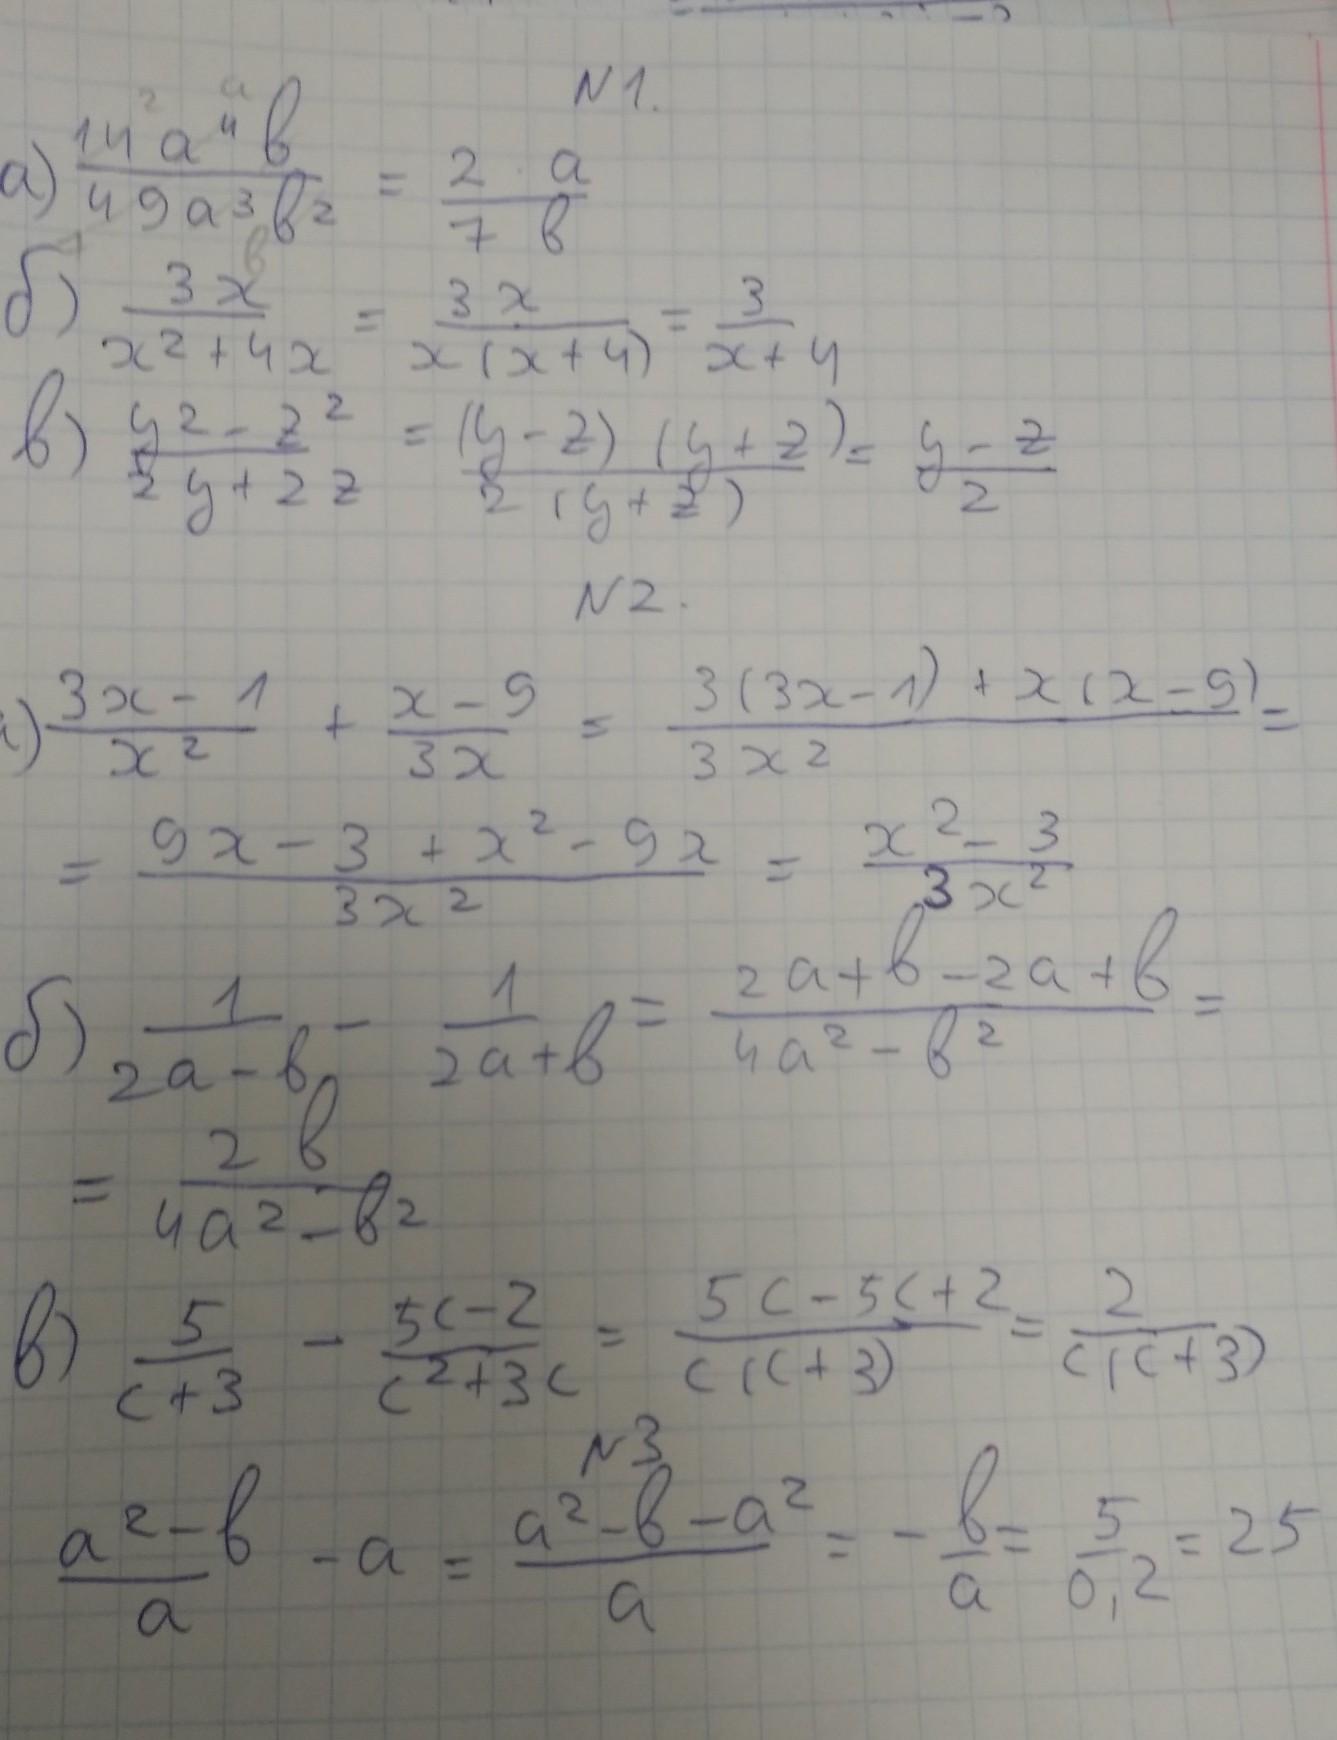 N1.
а) 14a⁴b/49a³b² = 2·a/7b
б) 3x/x²+4x = 3x/x(x+4) = 3/x+4
в) y²-z²/2y+2z = (y-z)(y+z)/2(y+z) = y-z/2
N2.
3x-1/x² + x-9/3x = 3(3x-1)+x(x-9)/3x² =
= 9x-3+x²-9x/3x² = x²-3/3x²
б) 1/2a-b - 1/2a+b = 2a+b-2a+b/4a²-b² =
= 2b/4a²-b²
в) 5/c+3 - 5c-2/c²+3c = 5c-5c+2/c(c+3) = 2/c(c+3)
N3
a²-b/a - a = a²-b-a²/a = -b/a = 5/0,2 = 25